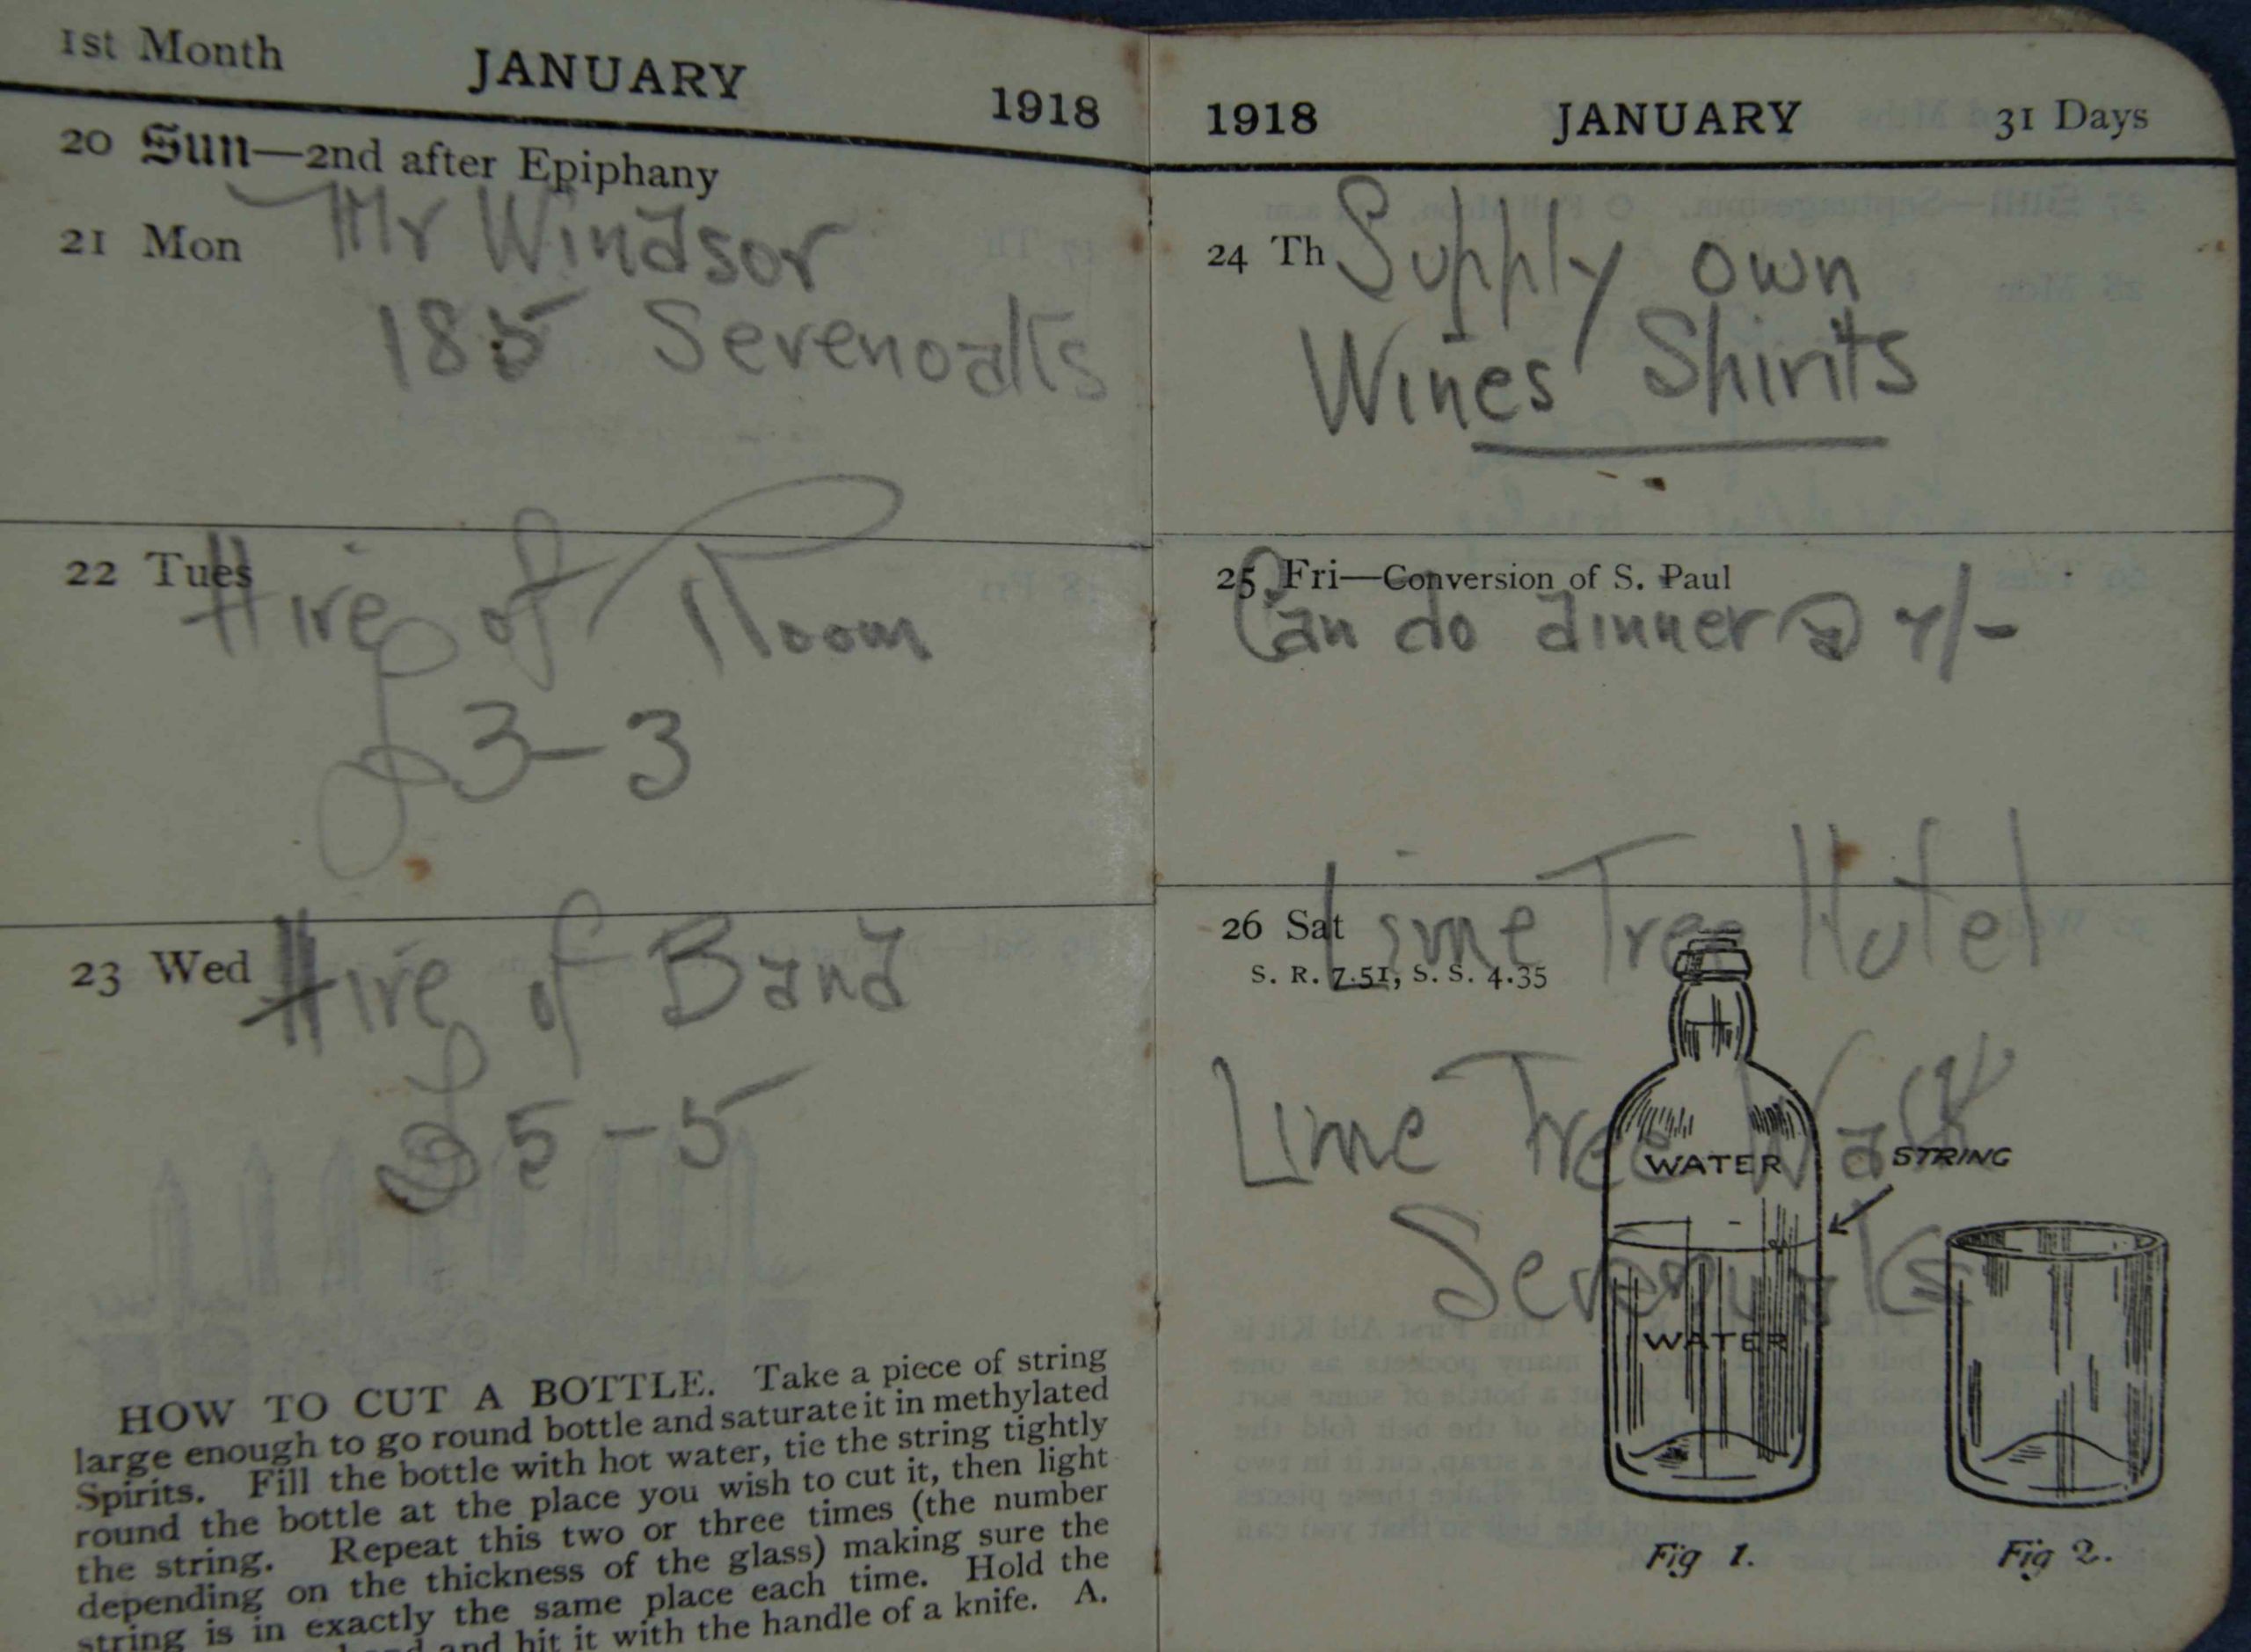 1st Month JANUARY 1918
20 Sun—2nd after Epiphany
21 Mon Mr Windsor
185 Sevenoaks
22 Tues Hire of Room
£3-3
23 Wed Hire of Band
£5-5
HOW TO CUT A BOTTLE. Take a piece of string
large enough to go round bottle and saturate it in methylated
Spirits. Fill the bottle with hot water, tie the string tightly
round the bottle at the place you wish to cut it, then light
the string. Repeat this two or three times (the number
depending on the thickness of the glass) making sure the
string is in exactly the same place each time. Hold the
and hit it with the handle of a knife. A.
1918 JANUARY 31 Days
24 Th Supply own
Wines Spirits
25 Fri—Conversion of S. Paul
Can do dinner @ 7/-
Lime Tree Hotel
26 Sat
S. R. 7.51, S. S. 4.35
Lime Tree Walk
WATER STRING
Sevenoaks
WATER
Fig 1. Fig 2.